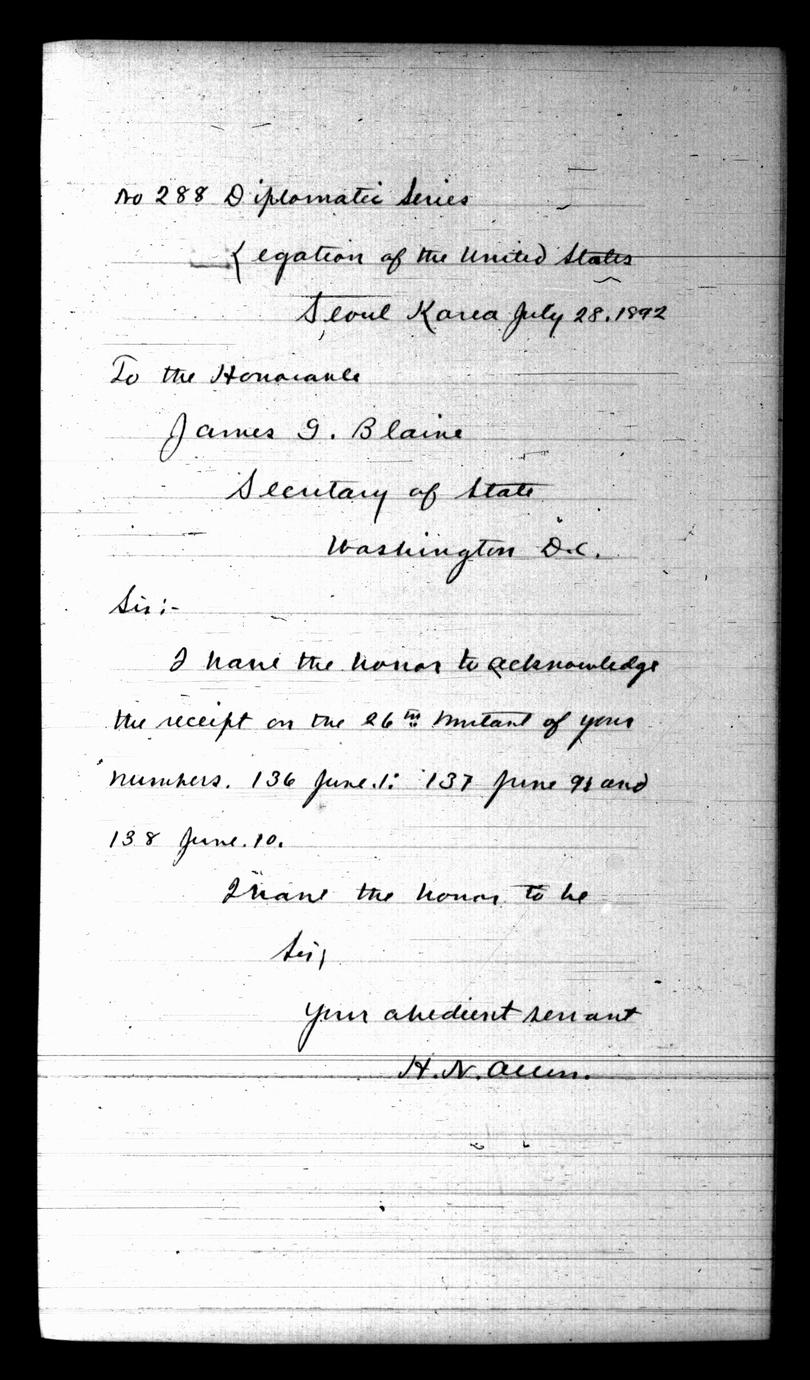 No 288 Diplomatic Series
Legation of the United States
Seoul Korea July 28. 1892
To the Honorable
James G. Blaine
Secretary of State
Washington D.C.
Sir:-
I have the honor to acknowledge
the receipt on the 26th instant of your
numbers. 136 June.1: 137 June 9; and
138 June.10.
I have the honor to be
Sir;
Your obedient servant
H.N. Allen.